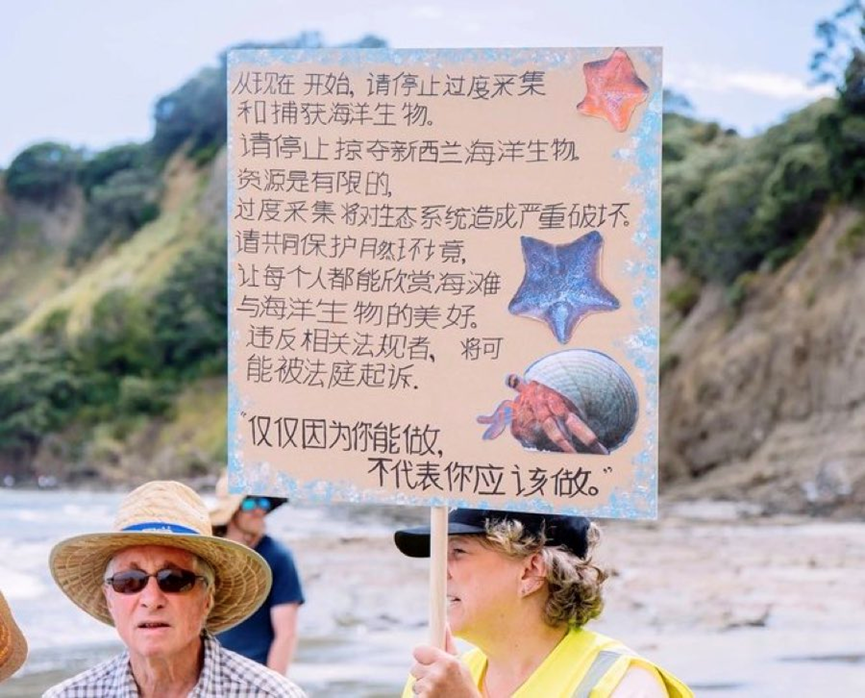 从现在 开始, 请停止过度采集
和捕获海洋生物。
请停止掠夺新西兰海洋生物.
资源是有限的,
过度采集将对生态系统造成严重破坏.
请共同保护自然环境,
让每个人都能欣赏海滩
与海洋生物的美好。
违反相关法规者, 将可
能被法庭起诉.
"仅仅因为你能做,
不代表你应该做。"